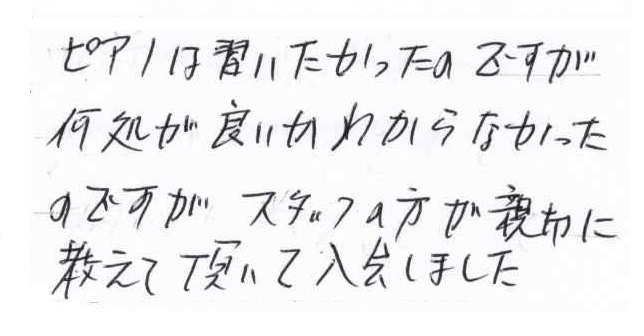 ピアノは習いたかったのですが
何処が良いかわからなかった
のですが スタッフの方が親切に
教えて頂いて入会しました